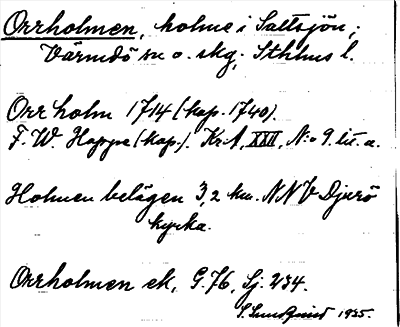 Orrholmen, holme i Saltsjön,
Värmdö sn o. skg, Sthlms l.
Orrholm 1714 (kop. 1740).
F. W. Hoppe (kop.). Kr.A, XXII, N:o 9. lit. a.
Holmen belägen 3,2 km. NNV Djurö
kyrka.
Orrholmen ek, G. 76, Sj. 234.
S. Lundqvist 1935.